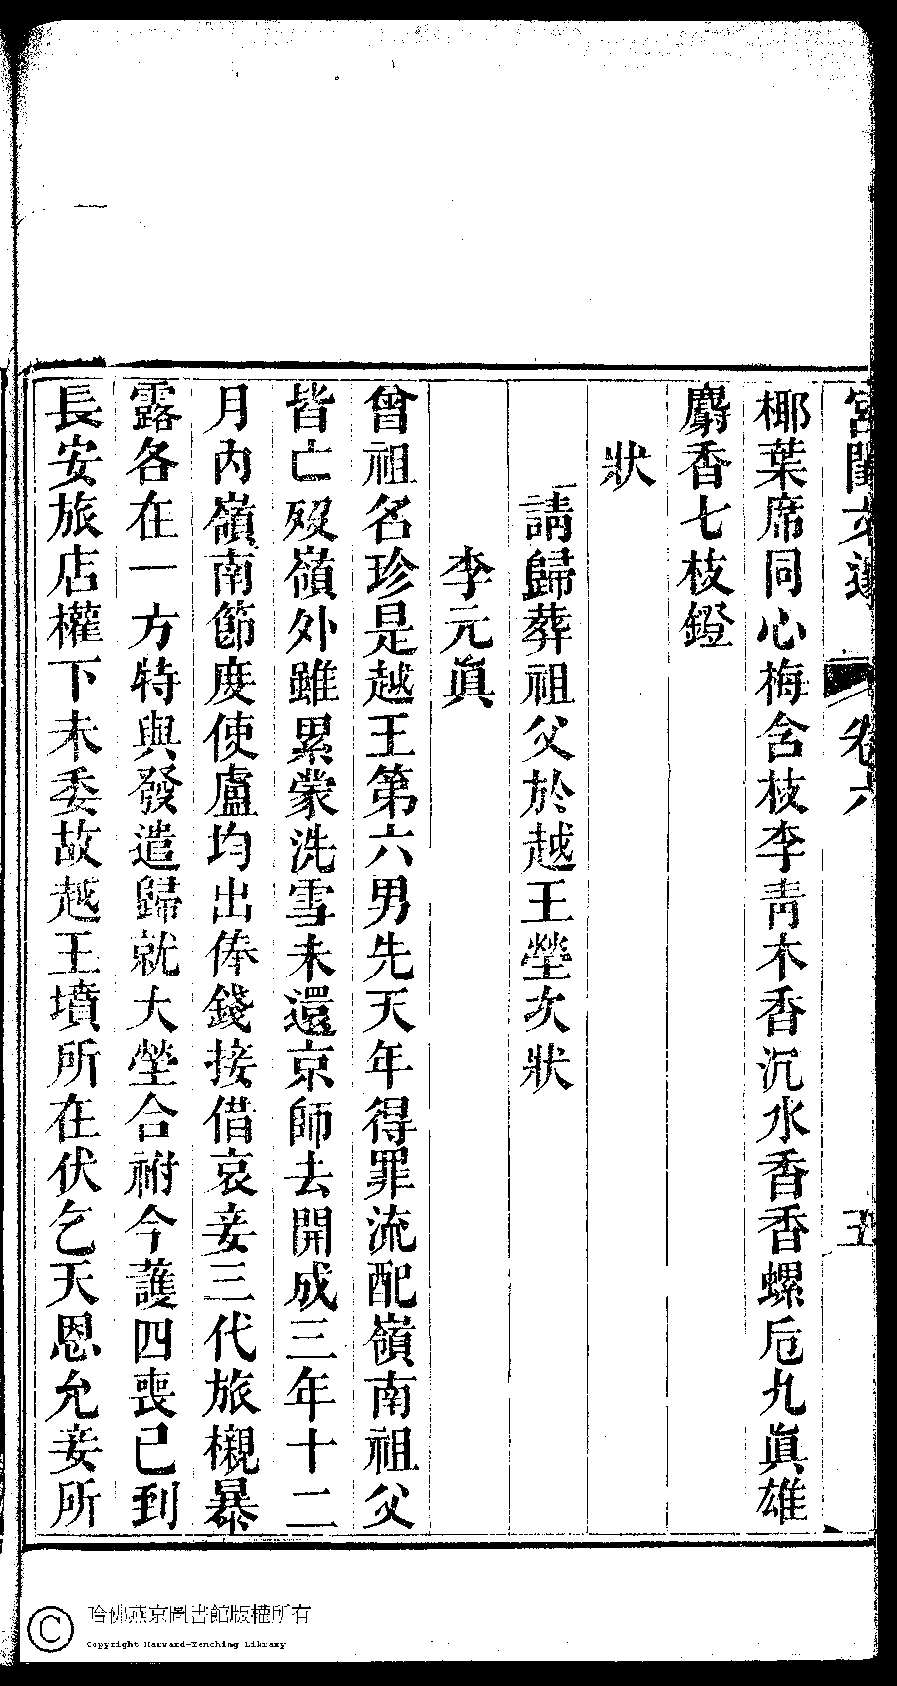 宮閨文選 卷六 五
椰葉席同心梅含枝李靑木香沉水香香螺巵九眞雄
麝香七枝鐙
狀
請歸葬祖父於越王塋次狀
李元眞
曾祖名珍是越王第六男先天年得罪流配嶺南祖父
皆亡殁嶺外雖累蒙洗雪未還京師去開成三年十二
月內嶺南節度使盧均出俸錢接借哀妾三代旅櫬暴
露各在一方特與發遣歸就大塋合祔今護四喪已到
長安旅店權下未委故越王墳所在伏乞天恩允妾所
哈佛燕京圖書館版權所有
Copyright Harvard-Yenching Library